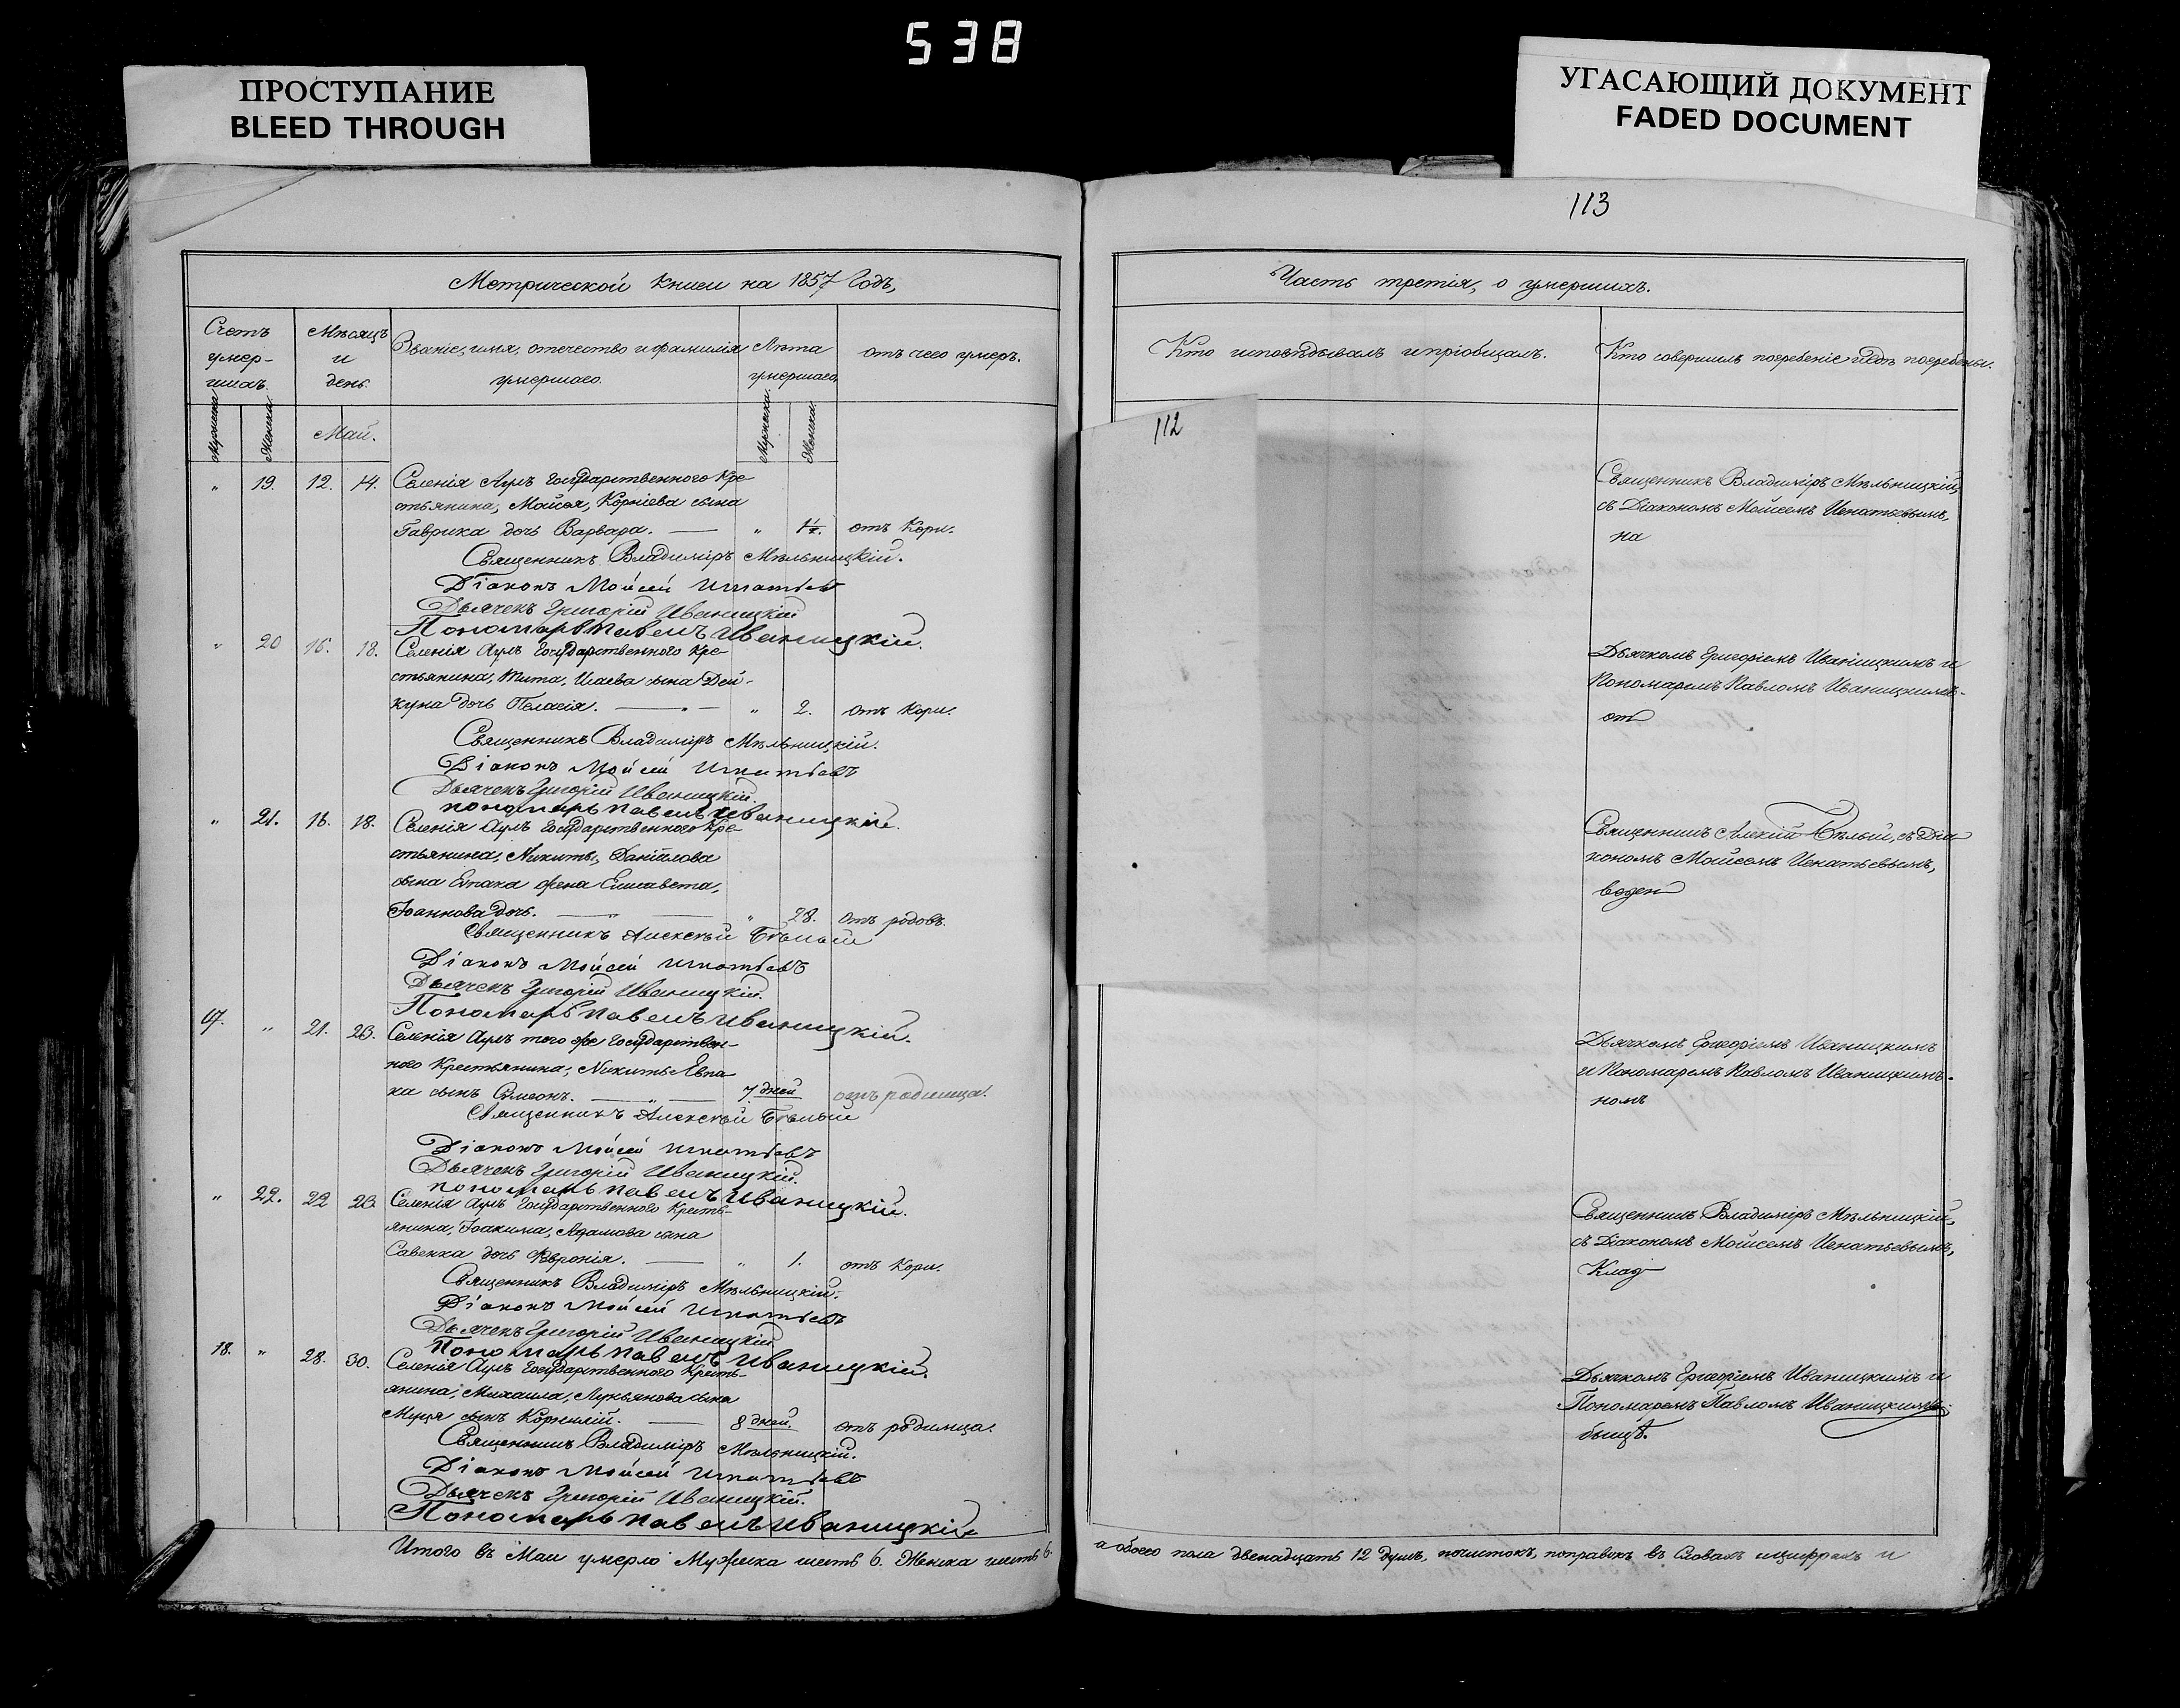 538
ПРОСТУПАНИЕ
BLEED THROUGH
УГАСАЮЩИЙ ДОКУМЕНТ
FADED DOCUMENT
Метрической книги на 1857 Годъ,
Счетъ умер-шихъ.
Мѣсяцъ и день.
Званіе, имя, отчество и фамилія умершаго.
Лѣта умершаго.
отъ чего умеръ.
Мужеска.
Женска.
Май.
Мужеска.
Женска.
„ 19. 12. 14. Селенія Аулъ Государственного Кре-
стьянина, Мойсея, Корніева сына
Гаврика дочь Варвара. — „ 1½. отъ Кори.
Священникъ Владиміръ Мѣльницкій.
Діаконъ Мойсей Игнатьевъ
Дьячекъ Григорій Иваницкій
Пономарь Павелъ Иваницкій.
„ 20 16. 18. Селенія Аулъ Государственного Кре-
стьянина, Тита, Исаева сына Дей-
куна дочь Пелагія. — „ — „ 2. отъ Кори.
Священникъ Владиміръ Мѣльницкій.
Діаконъ Мойсей Игнатьевъ
Дьячекъ Григорій Иваницкій.
пономарь Павелъ Иваницкій.
„ 21. 16. 18. Селенія Аулъ Государственного Кре-
стьянина, Никиты, Даніилова
сына Епака жена Елисавета,
Іоаннова дочь. — „ — „ 28. отъ родовъ.
Священникъ Алексѣй Бѣлый
Діаконъ Мойсей Игнатьевъ
Дьячекъ Григорій Иваницкій.
Пономарь Павелъ Иваницкій.
17. „ 21. 23. Селенія Аулъ того же Государствен-
ного Крестьянина, Никиты Епа
ка сынъ Симеонъ. — „ — 7 дней отъ родимца.
Священникъ Алексѣй Бѣлый
Діаконъ Мойсей Игнатьевъ
Дьячекъ Григорій Иваницкій.
пономарь Павелъ Иваницкій.
„ 22. 22 23. Селенія Аулъ Государственного Кресть-
янина, Іоакима, Адамова сына
Савенка дочь Февронія. — „ 1. отъ Кори.
Священникъ Владиміръ Мѣльницкій.
Діаконъ Мойсей Игнатьевъ
Дьячекъ Григорій Иваницкій
Пономарь Павелъ Иваницкій.
18. „ 28. 30. Селенія Аулъ Государственного Кресть-
янина, Михаила, Лукьянова сына
сынъ Корнилій. — 8 дней. отъ родимца.
Священникъ Владиміръ Мѣльницкій.
Діаконъ Мойсей Игнатьевъ
Дьячекъ Григорій Иваницкій.
Пономарь Павелъ Иваницкій
Итого въ Маи умерло Мужеска шесть 6. Женска шесть 6.
113
Часть третія, о умершихъ.
Кто исповѣдывалъ и пріобщалъ.
Кто совершилъ погребеніе и гдѣ погребены.
112
Священникъ Владиміръ Мѣльницкій,
съ Діакономъ Мойсеемъ Игнатьевымъ,
на
Дьячкомъ Григоріемъ Иваницкимъ и
Пономаремъ Павломъ Иваницкимъ.
от
Священникъ Алексій Бѣлый, съ Діа
кономъ Мойсеемъ Игнатьевымъ,
веден
Дьячкомъ Григоріемъ Иваницкимъ
и Пономаремъ Павломъ Иваницкимъ.
номъ
Священникъ Владиміръ Мѣльницкій,
съ Діакономъ Мойсеемъ Игнатьевымъ,
Клад
Дьячкомъ Григоріемъ Иваницкимъ и
Пономаремъ Павломъ Иваницкимъ.
бищѣ.
а обоего пола двенадцать 12 душъ, почистокъ, поправокъ въ Словахъ и цифрахъ и